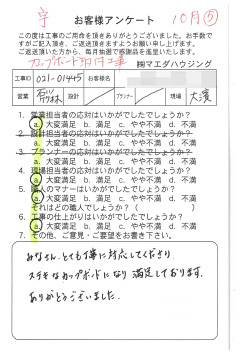 お客様アンケート
10月
この度は工事のご用命を頂きありがとうございました。お手数
ですがご記入頂き、ご返送頂きますようお願い申し上げます。
ご返送頂いた方から、毎月抽選で感謝品を進呈いたします。
カップボード取付工事
㈱マエダハウジング
工事ID 021-01445 お客様名
営業 設計 プランナー 現場 大濱
1. 営業担当者の応対はいかがでしたでしょうか?
a. 大変満足 b. 満足 c. やや不満 d. 不満
2. 設計担当者の応対はいかがでしたでしょうか?
a. 大変満足 b. 満足 c. やや不満 d. 不満
3. プランナーの応対はいかがでしたでしょうか?
a. 大変満足 b. 満足 c. やや不満 d. 不満
4. 現場担当者の応対はいかがでしたでしょうか?
a. 大変満足 b. 満足 c. やや不満 d. 不満
5. 職人のマナーはいかがでしたでしょうか?
a. 大変満足 b. 満足 c. やや不満 d. 不満
それはどの職人でしょうか?( )
6. 工事の仕上がりはいかがでしたでしょうか?
a. 大変満足 b. 満足 c. やや不満 d. 不満
7. その他、ご意見・ご要望をお書き下さい。
みなさん、とても丁寧に対応してくださり
ステキなカップボードになり満足しております。
ありがとうございました。